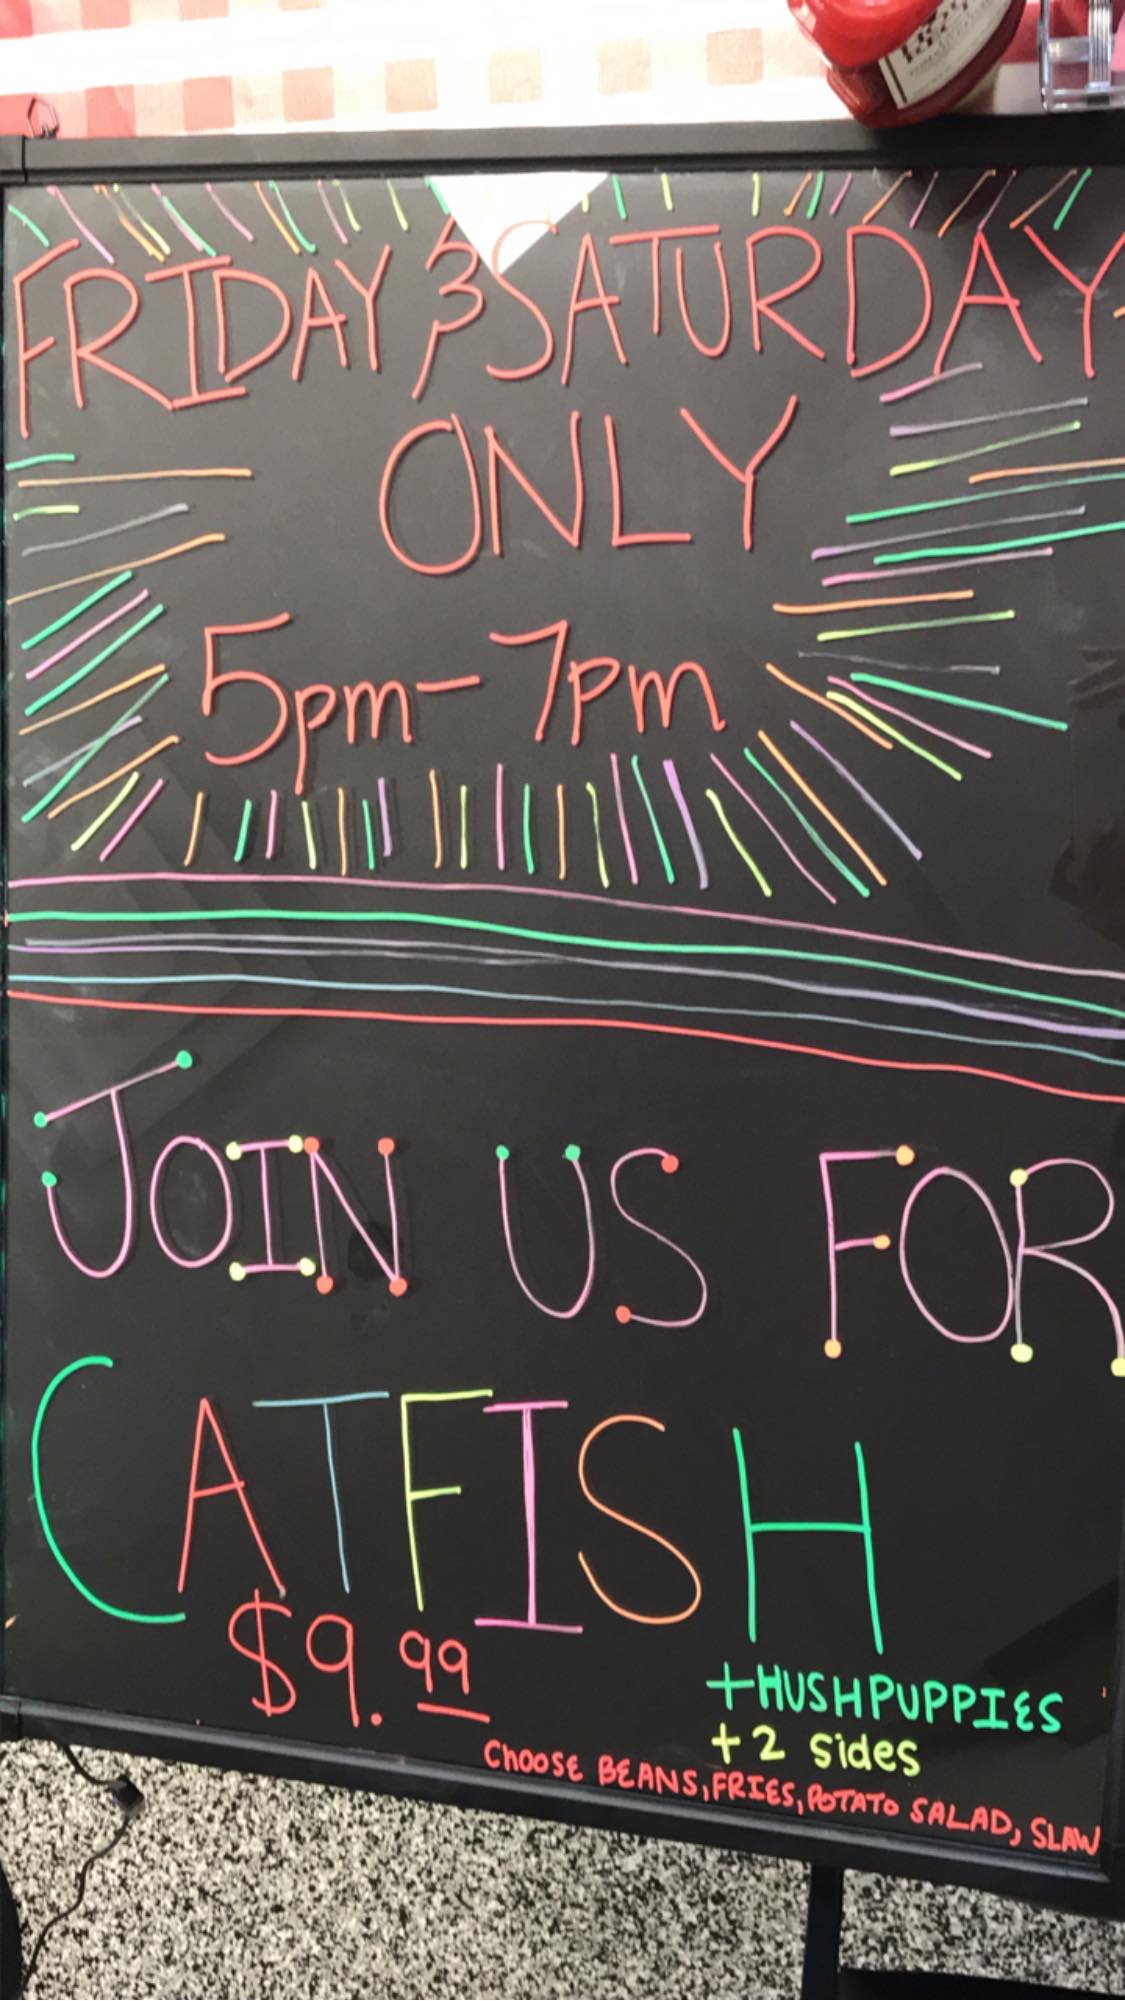 FRIDAY & SATURDAY
ONLY
5pm - 7pm
JOIN US FOR
CATFISH
$9.99
+HUSHPUPPIES
+2 sides
CHOOSE BEANS, FRIES, POTATO SALAD, SLAW